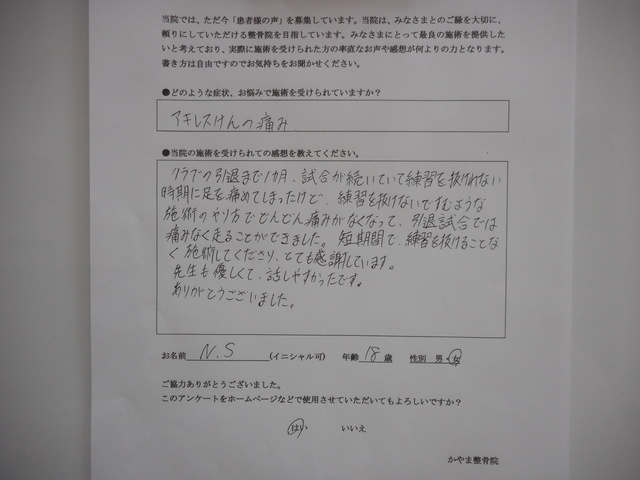 当院では、ただ今「患者様の声」を募集しています。当院は、みなさまとのご縁を大切に、
頼りにしていただける整骨院を目指しています。みなさまにとって最良の施術を提供した
いと考えており、実際に施術を受けられた方の率直なお声や感想が何よりの力となります。
書き方は自由ですのでお気持ちをお聞かせください。
●どのような症状、お悩みで施術を受けられていますか？
アキレスけんの痛み
●当院の施術を受けられての感想を教えてください。
クラブの引退まで1か月、試合が続いていて練習を抜けれない
時期に足を痛めてしまったけど、練習を抜けないですむような
施術のやり方でどんどん痛みがなくなって、引退試合では
痛みなく走ることができました。短期間で、練習を抜けることな
く施術してくださり、とても感謝しています。
先生も優しくて、話しやすかったです。
ありがとうございました。
お名前 N.S (イニシャル可) 年齢 18 歳 性別 男・女
ご協力ありがとうございました。
このアンケートをホームページなどで使用させていただいてもよろしいですか？
はい いいえ
かやま整骨院